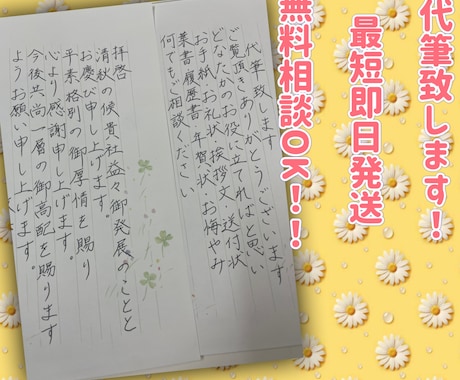 代筆致します!
最短即日発送
無料相談OK!!
代筆致します
ご覧頂きありがとうございます
どなたかのお役に立てればと思い
お手紙・お礼状・挨拶文・送付状
葉書・履歴書・年賀状・お悔やみ
何でもご相談ください
拝啓
清秋の候貴社益々御発展のことと
お慶び申し上げます。
平素格別の御厚情を賜り
心より感謝申し上げます。
今後共尚一層の御高配を賜ります
ようお願い申し上げます。